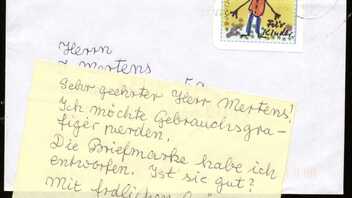 Für
Kinder
Herrn
J. Mertens
Sehr geehrter Herr Mertens!
Ich möchte Gebrauchsgra-
fiker werden.
Die Briefmarke habe ich
entworfen. Ist sie gut?
Mit